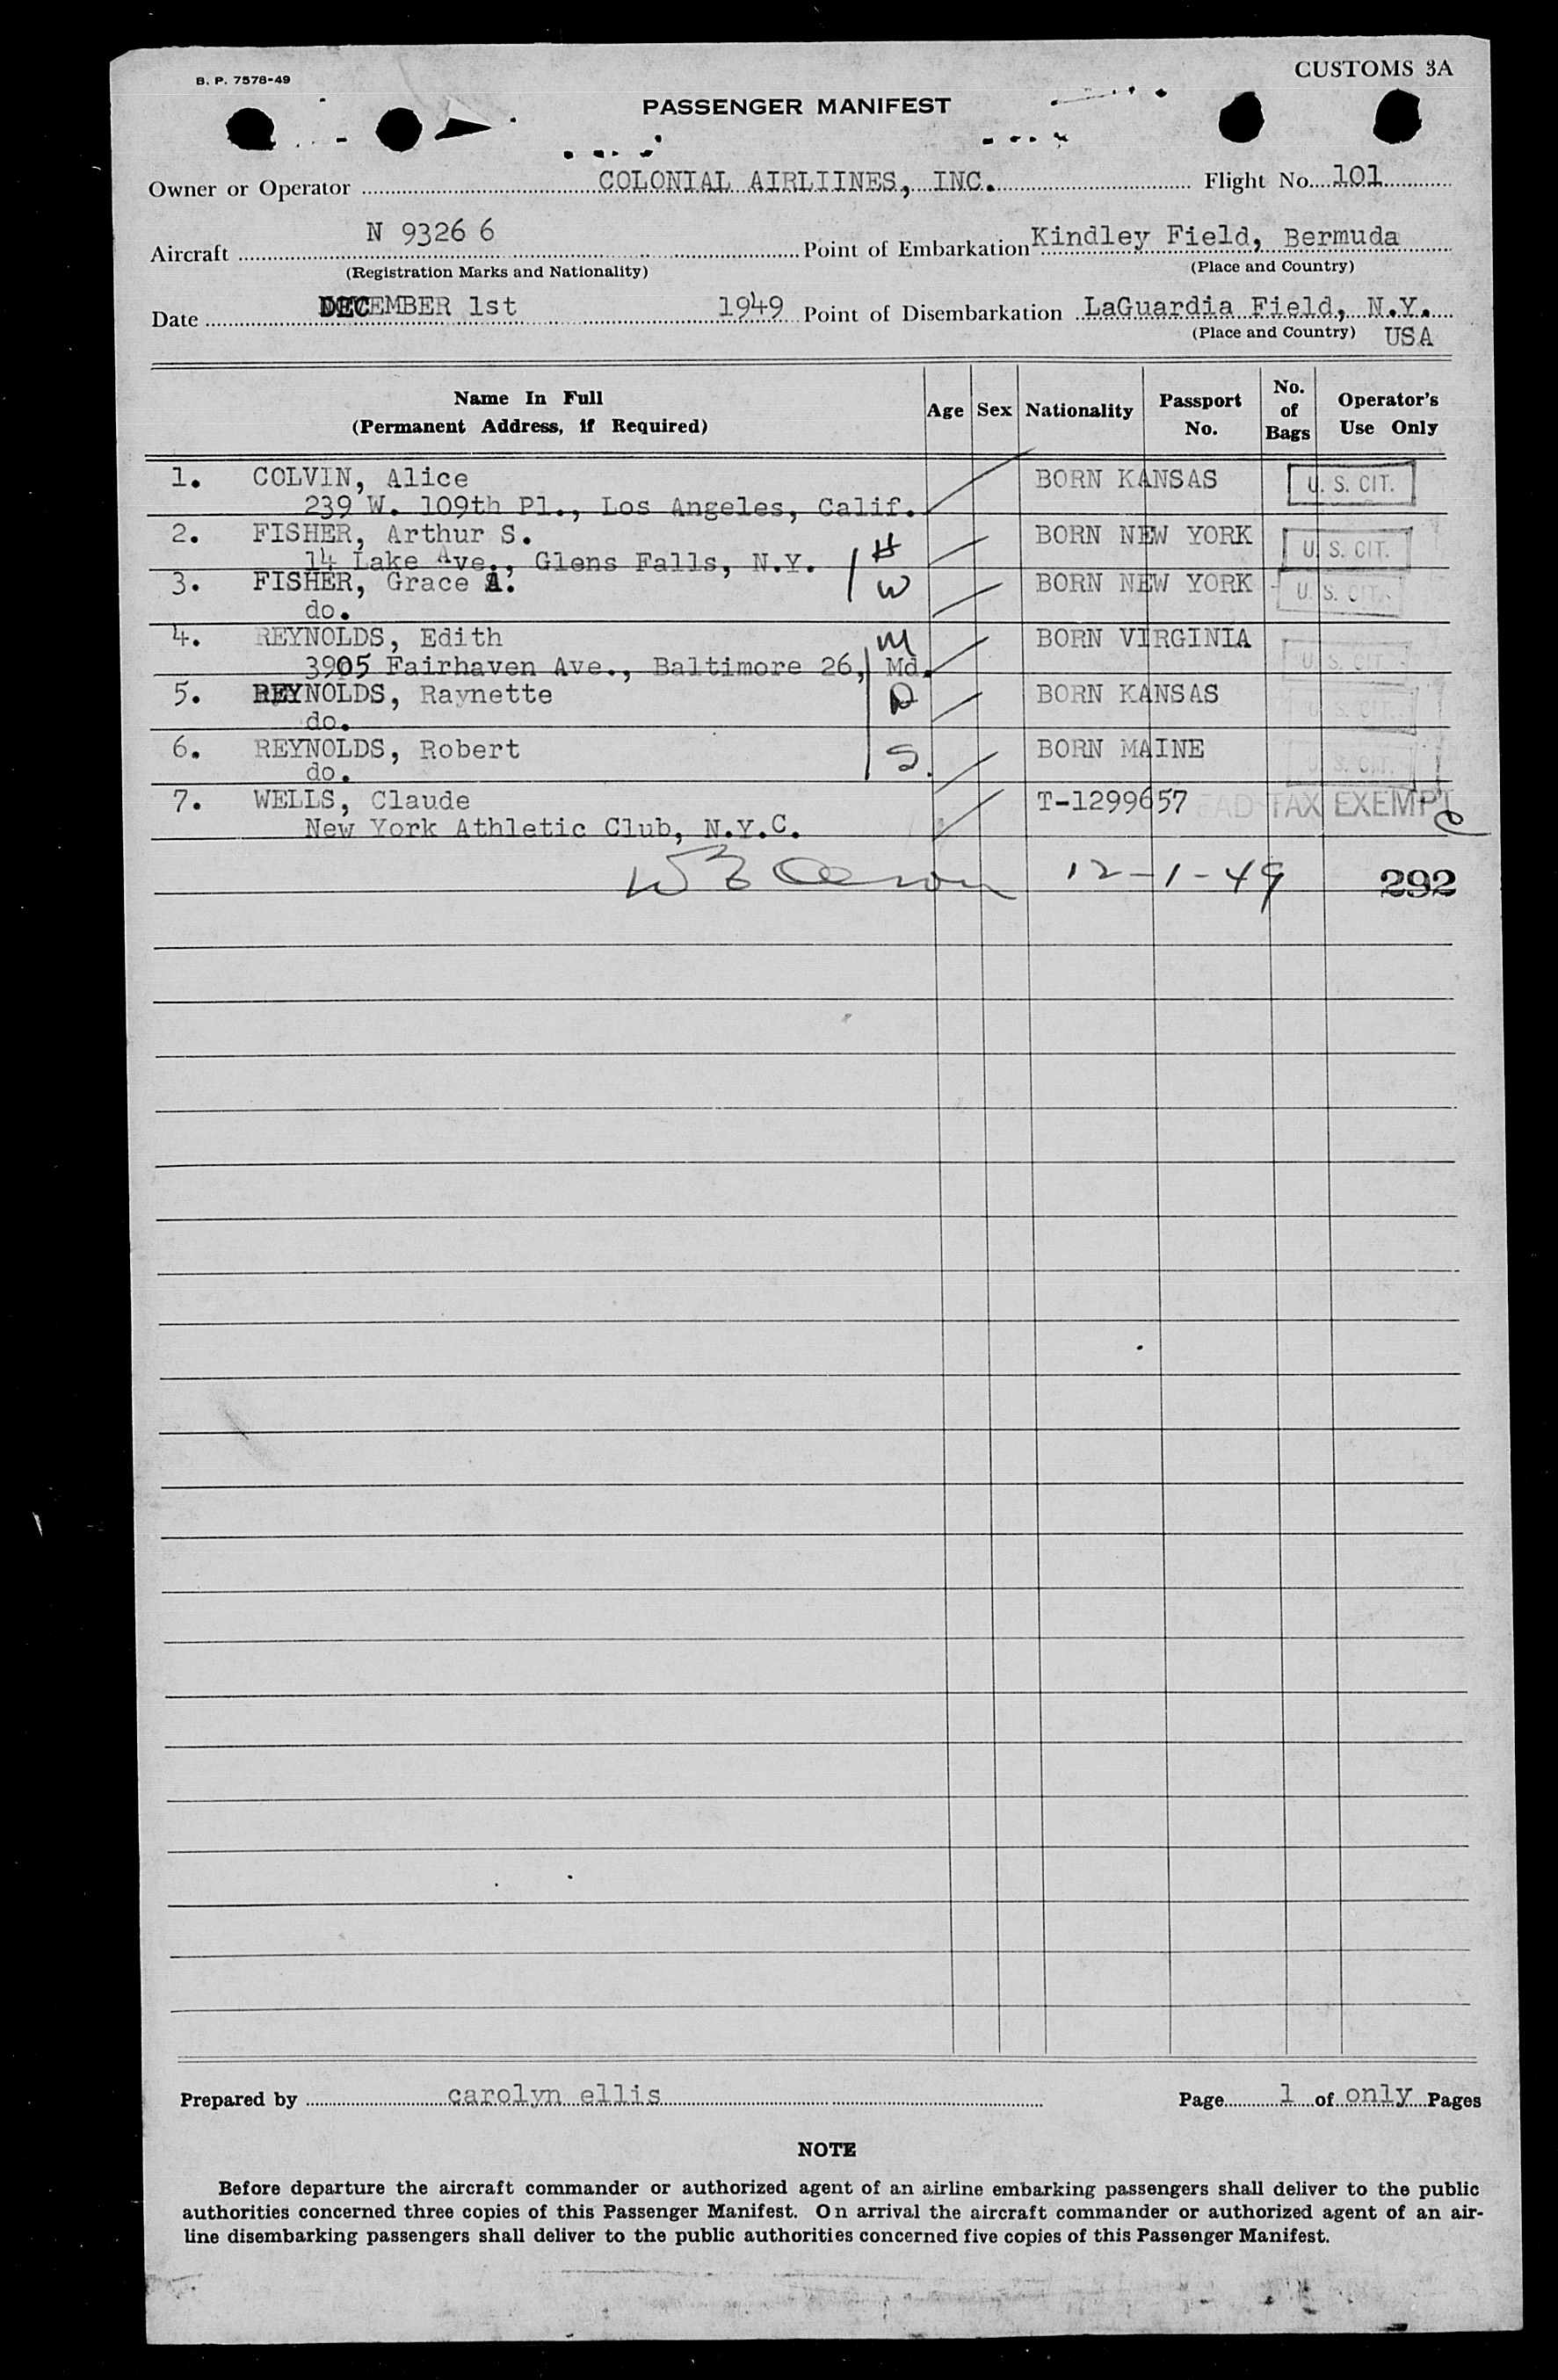 B. P. 7578-49
CUSTOMS 3A
PASSENGER MANIFEST
Owner or Operator COLONIAL AIRLIINES, INC. Flight No. 101
Aircraft N 9326 6 Point of Embarkation Kindley Field, Bermuda
(Registration Marks and Nationality) (Place and Country)
Date DECEMBER 1st 1949 Point of Disembarkation LaGuardia Field, N.Y.
(Place and Country) USA
Name In Full (Permanent Address, if Required) Age Sex Nationality Passport No. No. of Bags Operator's Use Only
1. COLVIN, Alice BORN KANSAS U. S. CIT.
239 W. 109th Pl., Los Angeles, Calif.
2. FISHER, Arthur S. H BORN NEW YORK U. S. CIT.
14 Lake Ave., Glens Falls, N.Y.
3. FISHER, Grace A. W BORN NEW YORK U. S. CIT.
do.
4. REYNOLDS, Edith M BORN VIRGINIA U. S. CIT.
3905 Fairhaven Ave., Baltimore 26, Md.
5. REYNOLDS, Raynette D BORN KANSAS U. S. CIT.
do.
6. REYNOLDS, Robert S. BORN MAINE U. S. CIT.
do.
7. WELLS, Claude T-1299657 HEAD TAX EXEMPT
New York Athletic Club, N.Y.C.
12-1-49 292
Prepared by carolyn ellis Page 1 of only Pages
NOTE
Before departure the aircraft commander or authorized agent of an airline embarking passengers shall deliver to the public
authorities concerned three copies of this Passenger Manifest. On arrival the aircraft commander or authorized agent of an air-
line disembarking passengers shall deliver to the public authorities concerned five copies of this Passenger Manifest.